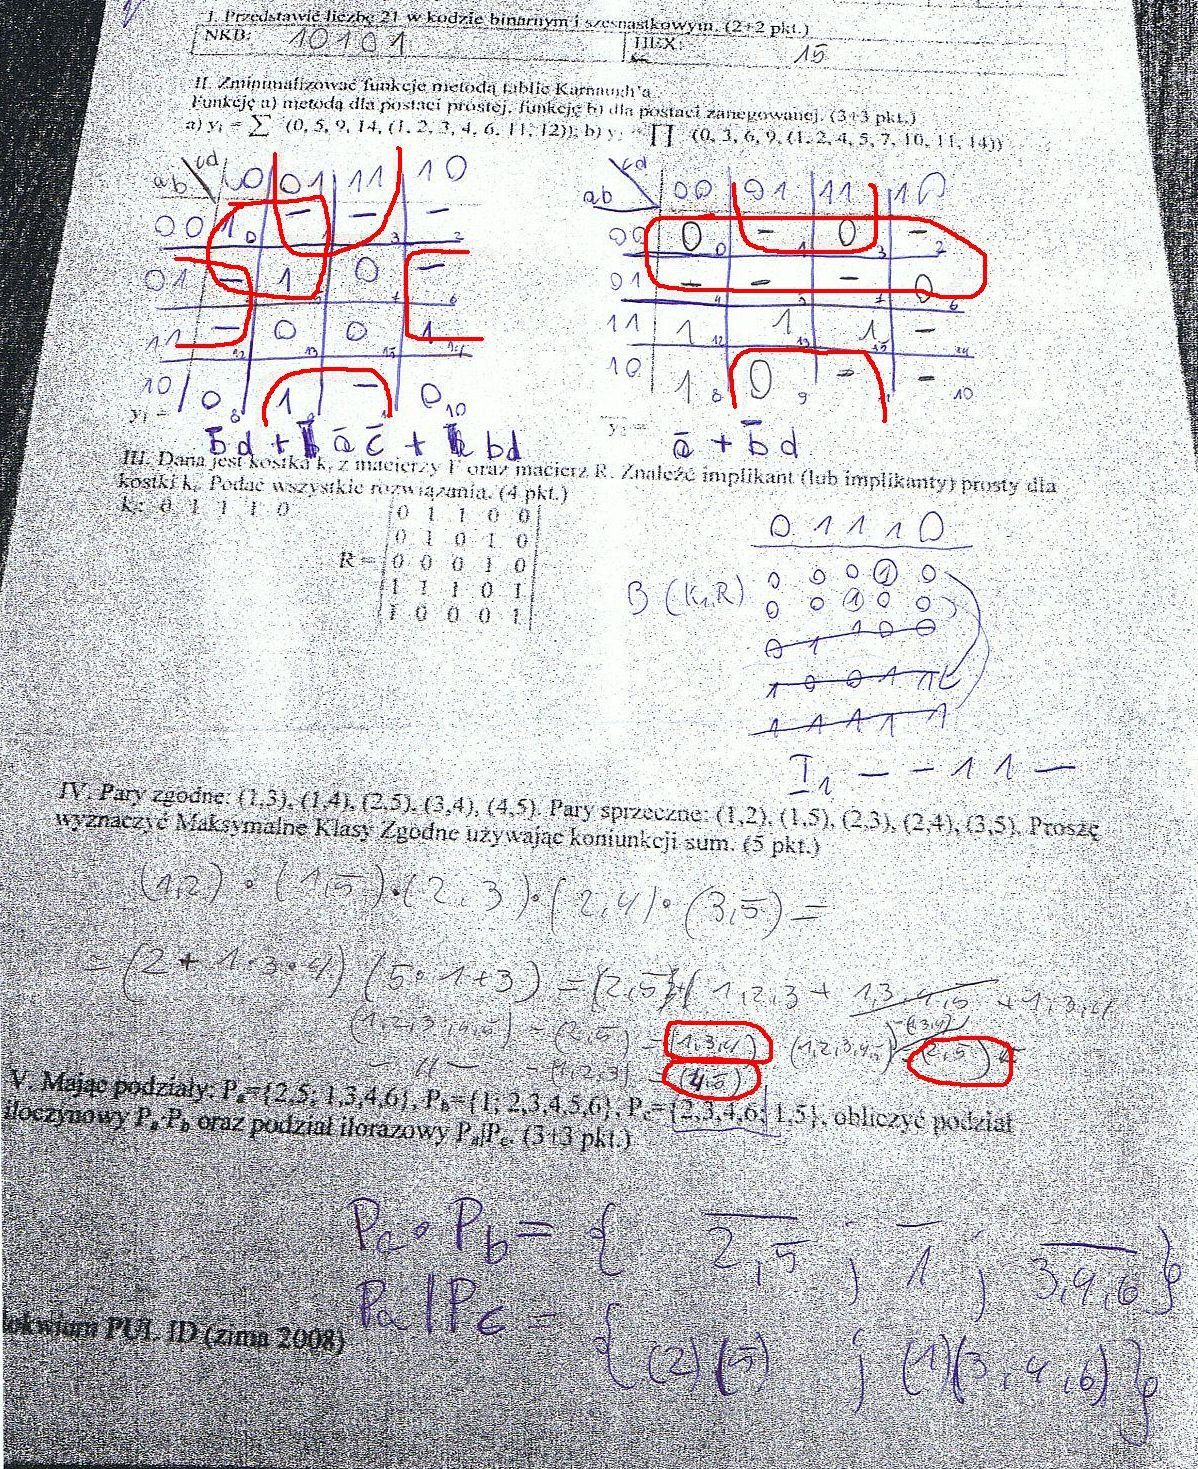 I. Przedstawić liczbę 21 w kodzie binarnym i szesnastkowym. (2+2 pkt.)
NKB: 10101 HEX: 15
II. Zminimalizować funkcje metodą tablic Karnaugh'a
Funkcję a) metodą dla postaci prostej, funkcję b) dla postaci zanegowanej. (3+3 pkt.)
a) y₁ = ∑ (0, 5, 9, 14, (1, 2, 3, 4, 6, 11, 12)); b) y₂ = ∏ (0, 3, 6, 9, (1, 2, 4, 5, 7, 10, 11, 14))
cd 00 01 11 10 cd 00 01 11 10
ab ab
00 1 0 – 1 – 3 – 2 00 0 0 – 1 0 3 – 2
01 – 1 5 0 7 – 6 01 – 4 – 5 – 7 0 6
11 – 12 0 13 0 15 1 14 11 1 12 1 13 1 15 – 14
10 0 8 1 – 0 10 10 1 8 0 9 – 11 – 10
y₁ = y₂ =
b̄ d + ā c̄ + bd ā + b̄ d
III. Dana jest kostka k₁ z macierzy F oraz macierz R. Znaleźć implikant (lub implikanty) prosty dla
kostki k₁. Podać wszystkie rozwiązania. (4 pkt.)
k₁: 0 1 1 1 0
0 1 1 0 0
0 1 0 1 0
R = 0 0 0 1 0
1 1 1 0 1
1 0 0 0 1
0 1 1 1 0
B (K₁,R) 0 0 0 1 0
0 0 1 0 0
0 1 1 0 0
1 0 0 1 1
1 1 1 1 1
I₁ – – 1 1 –
IV. Pary zgodne: (1,3), (1,4), (2,5), (3,4), (4,5). Pary sprzeczne: (1,2), (1,5), (2,3), (2,4), (3,5). Proszę
wyznaczyć Maksymalne Klasy Zgodne używając koniunkcji sum. (5 pkt.)
(1,2) · (1,5) · (2,3) · (2,4) · (3,5) =
= (2 + 1·3·4) (5·1+3) = (2,5)+( 1,2,3 + 1,3,4,5 + 1,3,4
(1,2,3,4,5) – (2,5) = (1,3,4) (1,2,3,4,5) – (1,3,4) = (2,5)
– 11 – – (1,2,3) = (4,5)
V. Mając podziały: Pₐ={2,5; 1,3,4,6}, P_b={1; 2,3,4,5,6}, P_c={2,3,4,6; 1,5}, obliczyć podział
iloczynowy Pₐ·P_b oraz podział ilorazowy Pₐ|P_c. (3+3 pkt.)
Pₐ · P_b = { 2,5 ; 1 ; 3,4,6 }
Pₐ | P_c = { (2)(5) ; (1)(3,4,6) }
kolokwium PUL ID (zima 2008)